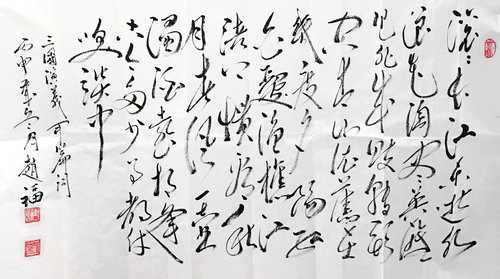 滚滚长江东逝水
浪花淘尽英雄
是非成败转头
空青山依旧在
几度夕阳红
白发渔樵江
渚上惯看秋
月春风一壶
浊酒喜相逢
古今多少事都付
笑谈中
三国演义开篇词
丙申年 月赵福